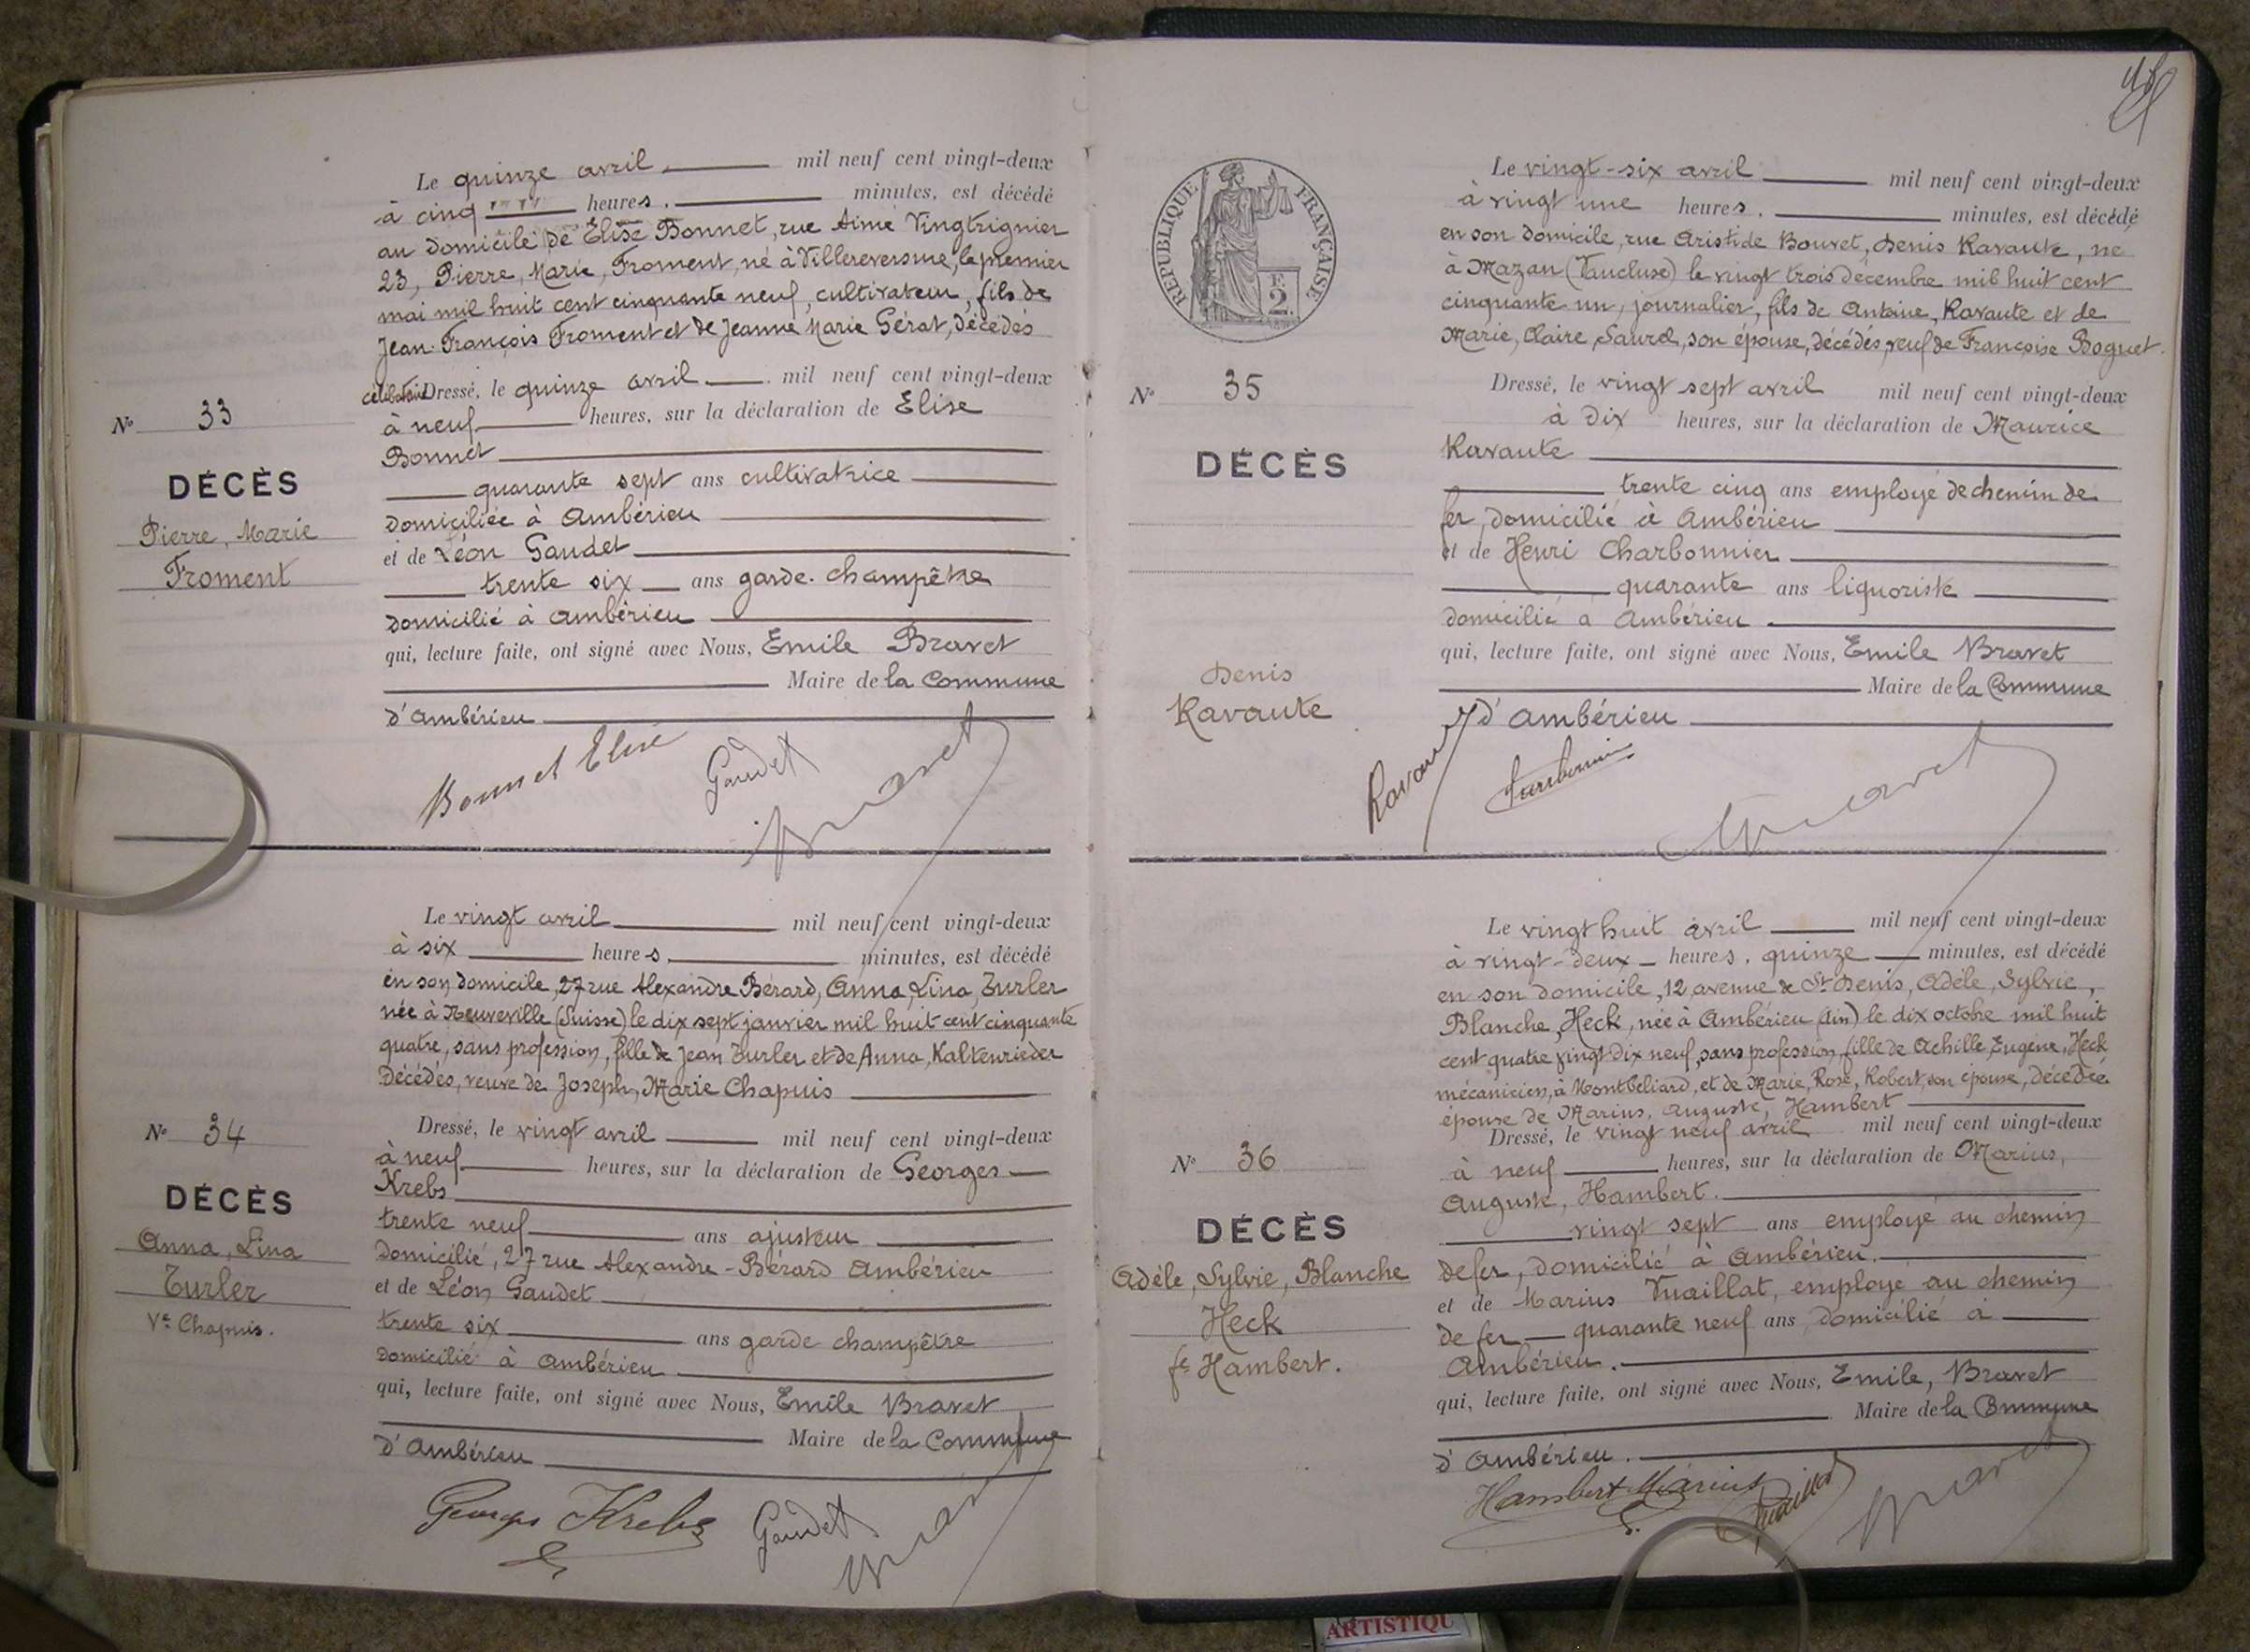 Le quinze avril, mil neuf cent vingt-deux
à cinq heures, minutes, est décédé
au domicile de Elise Bonnet, rue Aimé Vingtrignier
23, Pierre, Marie, Froment, né à Villereversure, le premier
mai mil huit cent cinquante neuf, cultivateur, fils de
Jean-François Froment et de Jeanne Marie Gérat, décédés
célibataire Dressé, le quinze avril mil neuf cent vingt-deux
à neuf heures, sur la déclaration de Elise
Bonnet
quarante sept ans cultivatrice
domiciliée à Ambérieu
et de Léon Gaudet
trente six ans garde-champêtre
domicilié à Ambérieu
qui, lecture faite, ont signé avec Nous, Emile Bravet
Maire de la Commune
d'Ambérieu
Bonnet Elise Gaudet Bravet
N° 33
DÉCÈS
Pierre, Marie
Froment
Le vingt avril mil neuf cent vingt-deux
à six heures, minutes, est décédé
en son domicile, 27 rue Alexandre Bérard, Anna, Lina, Turler
née à Neuveville (Suisse) le dix sept janvier mil huit cent cinquante
quatre, sans profession, fille de Jean Turler et de Anna, Kaltenrieder
décédés, veuve de Joseph, Marie Chapuis
Dressé, le vingt avril mil neuf cent vingt-deux
à neuf heures, sur la déclaration de Georges
Krebs
trente neuf ans ajusteur
domicilié, 27 rue Alexandre-Bérard Ambérieu
et de Léon Gaudet
trente six ans garde champêtre
domicilié à Ambérieu
qui, lecture faite, ont signé avec Nous, Emile Bravet
Maire de la Commune
d'Ambérieu
Georges Krebs Gaudet Bravet
N° 34
DÉCÈS
Anna, Lina
Turler
Ve Chapuis.
RÉPUBLIQUE FRANÇAISE
F.
2.
Le vingt-six avril mil neuf cent vingt-deux
à vingt une heures, minutes, est décédé
en son domicile, rue Aristide Bouvet, Denis Ravaute, né
à Mazan (Vaucluse) le vingt trois decembre mil huit cent
cinquante un, journalier, fils de Antoine, Ravaute et de
Marie, Claire, Saurel, son épouse, décédés, veuf de Françoise Boguet.
Dressé, le vingt sept avril mil neuf cent vingt-deux
à dix heures, sur la déclaration de Maurice
Ravaute
trente cinq ans employé de chemin de
fer, domicilié à Ambérieu
et de Henri Charbonnier
quarante ans liquoriste
domicilié à Ambérieu
qui, lecture faite, ont signé avec Nous, Emile Bravet
Maire de la Commune
d'Ambérieu
Bravet
N° 35
DÉCÈS
Denis
Ravaute
Le vingt huit avril mil neuf cent vingt-deux
à vingt-deux heures, quinze minutes, est décédé
en son domicile, 12 avenue de St Denis, Adèle, Sylvie,
Blanche, Heck, née à Ambérieu (Ain) le dix octobre mil huit
cent quatre vingt dix neuf, sans profession, fille de Achille, Eugène, Heck
mécanicien, à Montbéliard, et de Marie, Rose, Robert, son épouse, décédée
épouse de Marius, Auguste, Hambert
Dressé, le vingt neuf avril mil neuf cent vingt-deux
à neuf heures, sur la déclaration de Marius,
Auguste, Hambert.
vingt sept ans employé au chemin
de fer, domicilié à Ambérieu.
et de Marius Vuaillat, employé au chemin
de fer quarante neuf ans domicilié à
Ambérieu.
qui, lecture faite, ont signé avec Nous, Emile, Bravet
Maire de la Commune
d'Ambérieu.
Hambert Marius Vuaillat Bravet
N° 36
DÉCÈS
Adèle, Sylvie, Blanche
Heck
fe Hambert.
ARTISTIQU